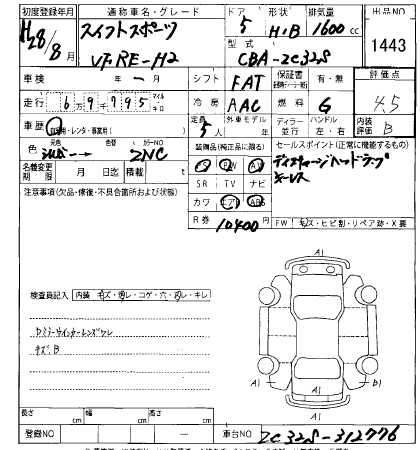 初度登録年月 通称車名・グレード ドア 形状 排気量 出品NO
H28/8月 スイフトスポーツ 5 H・B 1600cc
型式 1443
CBA-ZC32S
車検 年 ー 月 シフト FAT 保証書 有・無 評価点
走行 6万9千795 マイル キロ 冷房 AAC 燃料 G 4.5
車歴 自家用・レンタ・事業用( 定員 5人 外車モデル ディーラー 並行 ハンドル 左・右 内装評価 B
色 元色 色替 カラーNO 2NC 装備品(純正品に限る) セールスポイント(正常に機能するもの)
PS PW AW ディスチャージヘッドランプ
名義変更期限 月 日迄 積載 t SR TV ナビ キーレス
注意事項(欠品・修復・不具合箇所および状態) カワ エアB ABS
R券 10400円 FW キズ・ヒビ割・リペア跡・X要
A1
検査員記入 内装 キズ・汚レ・コゲ・穴・スレ・キレ
キズ、B
A1 B1
A1
長さ cm 幅 cm 高さ cm
登録NO ー 車台NO ZC32S-312776